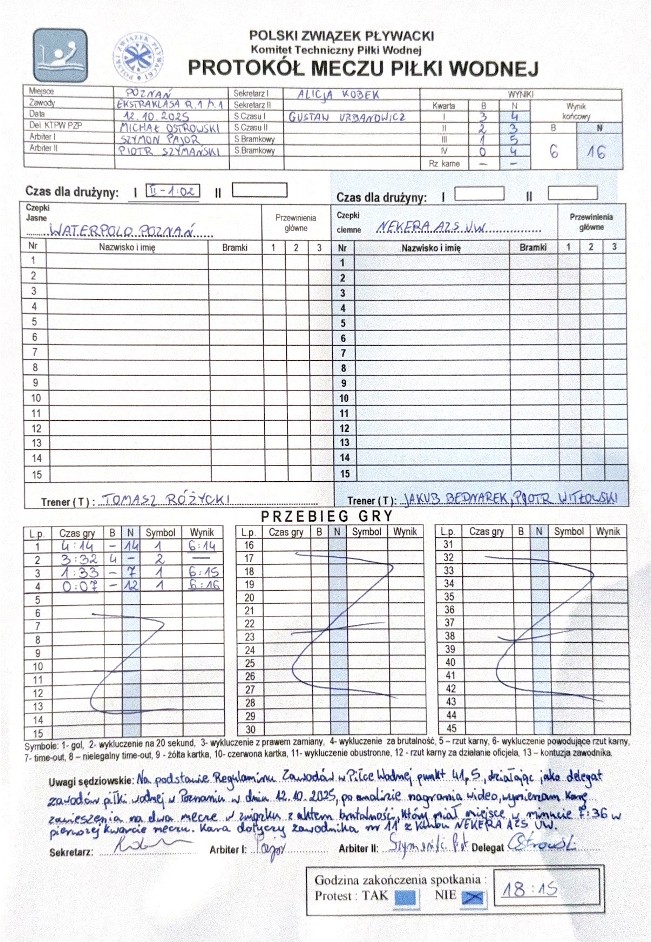 POLSKI ZWIĄZEK PŁYWACKI
Komitet Techniczny Piłki Wodnej
PROTOKÓŁ MECZU PIŁKI WODNEJ
POLSKI ZWIĄZEK PŁYWACKI
Miejsce POZNAŃ Sekretarz I ALICJA KOBEK WYNIKI
Zawody EKSTRAKLASA R.1 M.1 Sekretarz II Kwarta B N Wynik końcowy
Data 12.10.2025 S.Czasu I GUSTAW URBANOWICZ I 3 4 B N
Del KTPW PZP MICHAŁ OSTROWSKI S.Czasu II II 2 3 6 16
Arbiter I SZYMON PAJOR S.Bramkowy III 1 5
Arbiter II PIOTR SZYMAŃSKI S.Bramkowy IV 0 4
Rz karne – –
Czas dla drużyny: I II-1:02 II
Czas dla drużyny: I II
Czepki Jasne WATERPOLO POZNAŃ Przewinienia główne
Czepki ciemne NEKERA AZS UW Przewinienia główne
Nr Nazwisko i imię Bramki 1 2 3 Nr Nazwisko i imię Bramki 1 2 3
1 1
2 2
3 3
4 4
5 5
6 6
7 7
8 8
9 9
10 10
11 11
12 12
13 13
14 14
15 15
Trener ( T ) : TOMASZ RÓŻYCKI
Trener ( T ) : JAKUB BEDNAREK, PIOTR WITŁOWSKI
PRZEBIEG GRY
L.p. Czas gry B N Symbol Wynik
1 4:14 – 14 1 6:14
2 3:32 4 – 2 —
3 1:33 – 7 1 6:15
4 0:07 – 12 1 6:16
5
6
7
8
9
10
11
12
13
14
15
L.p. Czas gry B N Symbol Wynik
16
17
18
19
20
21
22
23
24
25
26
27
28
29
30
L.p. Czas gry B N Symbol Wynik
31
32
33
34
35
36
37
38
39
40
41
42
43
44
45
Symbole: 1- gol, 2- wykluczenie na 20 sekund, 3- wykluczenie z prawem zamiany, 4- wykluczenie za brutalność, 5 – rzut karny, 6- wykluczenie powodujące rzut karny,
7- time-out, 8 – nielegalny time-out, 9 - żółta kartka, 10- czerwona kartka, 11- wykluczenie obustronne, 12 - rzut karny za działanie oficjela, 13 – kontuzja zawodnika.
Uwagi sędziowskie: Na podstawie Regulaminu Zawodów w Piłce Wodnej punkt 41,5, działając jako delegat
zawodów piłki wodnej w Poznaniu w dniu 12.10.2025, po analizie nagrania video, wymierzam karę
zawieszenia na dwa mecze w związku z aktem brutalności, który miał miejsce w minucie 7:36 w
pierwszej kwarcie meczu. Kara dotyczy zawodnika nr 11 z klubu NEKERA AZS UW.
Sekretarz: Arbiter I: Pajor Arbiter II: Delegat
Godzina zakończenia spotkania : 18:15
Protest : TAK NIE